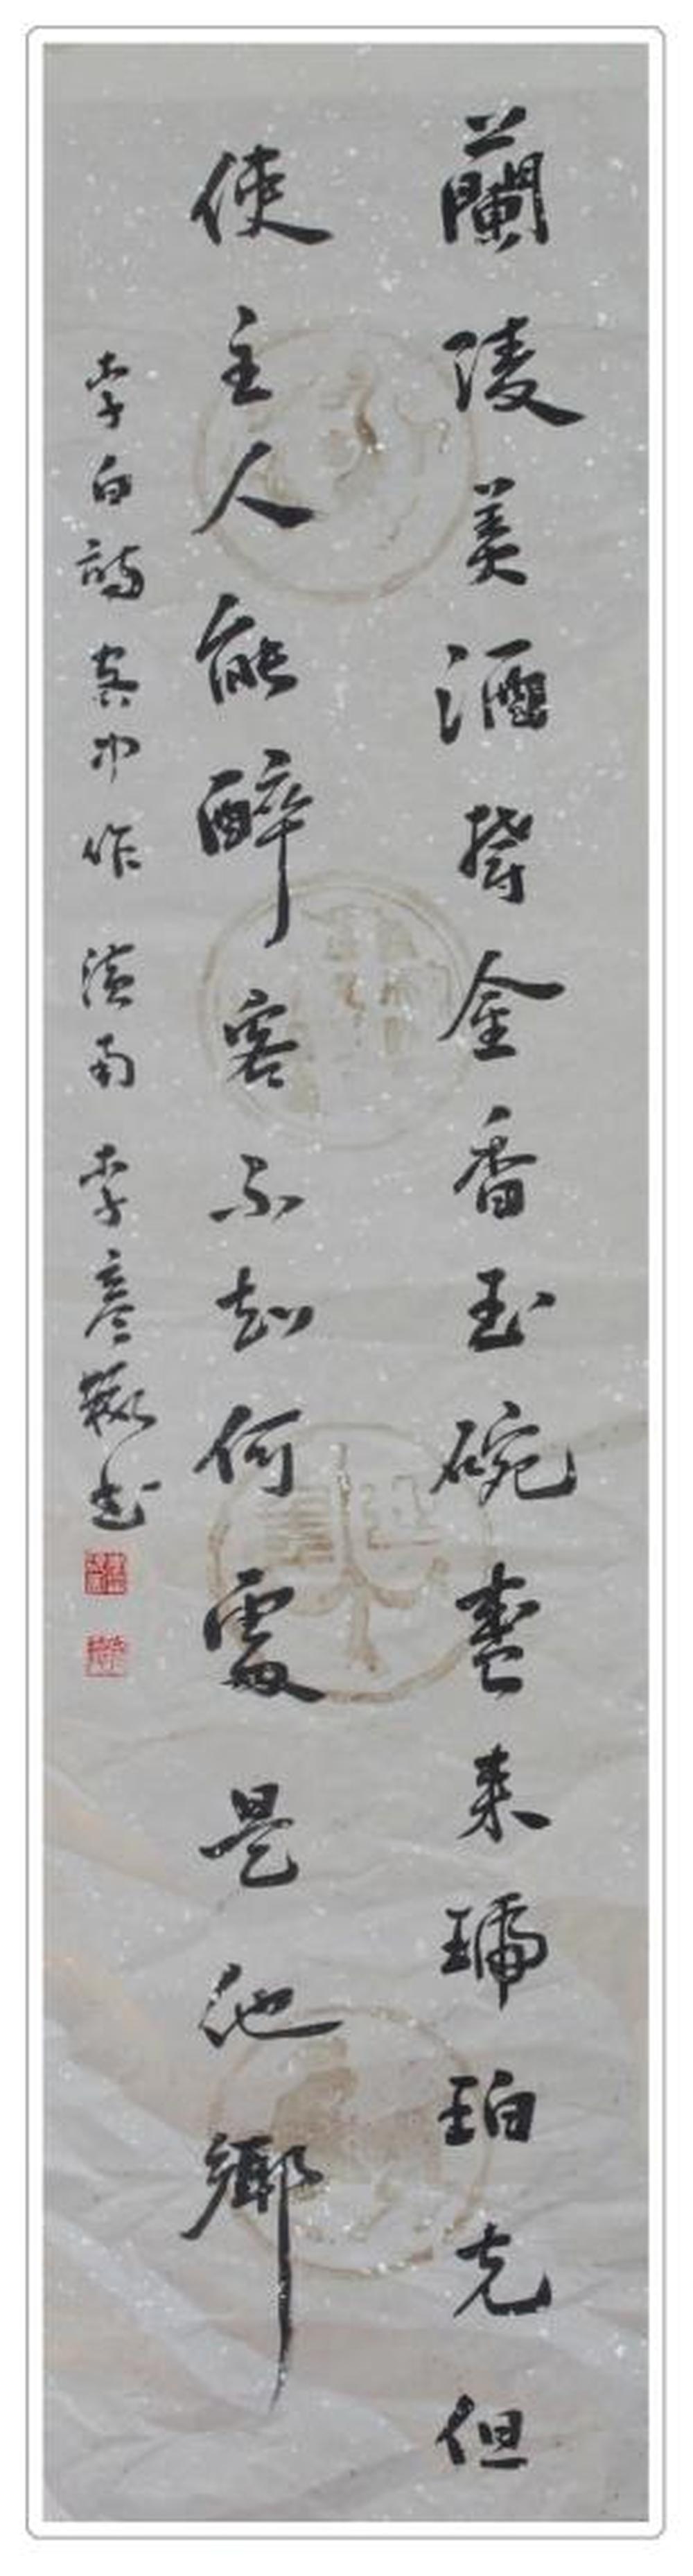 蘭陵美酒鬱金香玉碗盛来琥珀光但
使主人能醉客不知何處是他鄉
李白詩客中作 滇南 李彦书